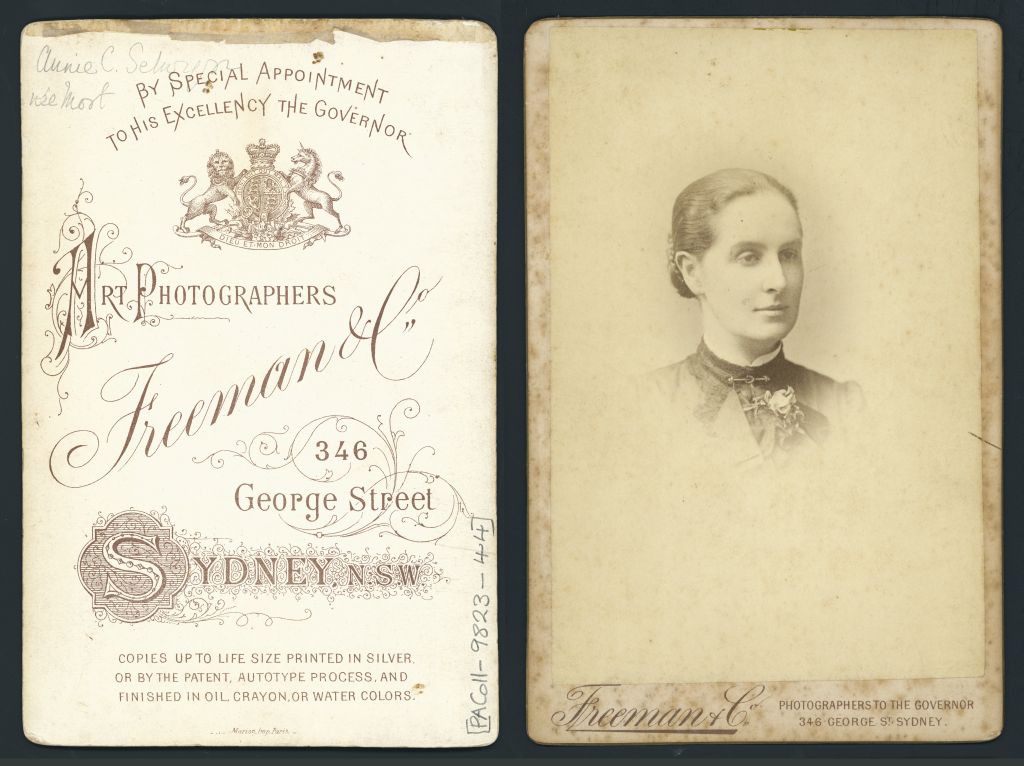 Annie C.
née Mort
BY SPECIAL APPOINTMENT
TO HIS EXCELLENCY THE GOVERNOR
DIEU ET MON DROIT
ART PHOTOGRAPHERS
Freeman & Co
346
George Street
SYDNEY. N.S.W
COPIES UP TO LIFE SIZE PRINTED IN SILVER,
OR BY THE PATENT, AUTOTYPE PROCESS, AND
FINISHED IN OIL, CRAYON, OR WATER COLORS.
Marion, Imp. Paris.
[PAColl-9823-44]
Freeman & Co
PHOTOGRAPHERS TO THE GOVERNOR
346 GEORGE ST SYDNEY.